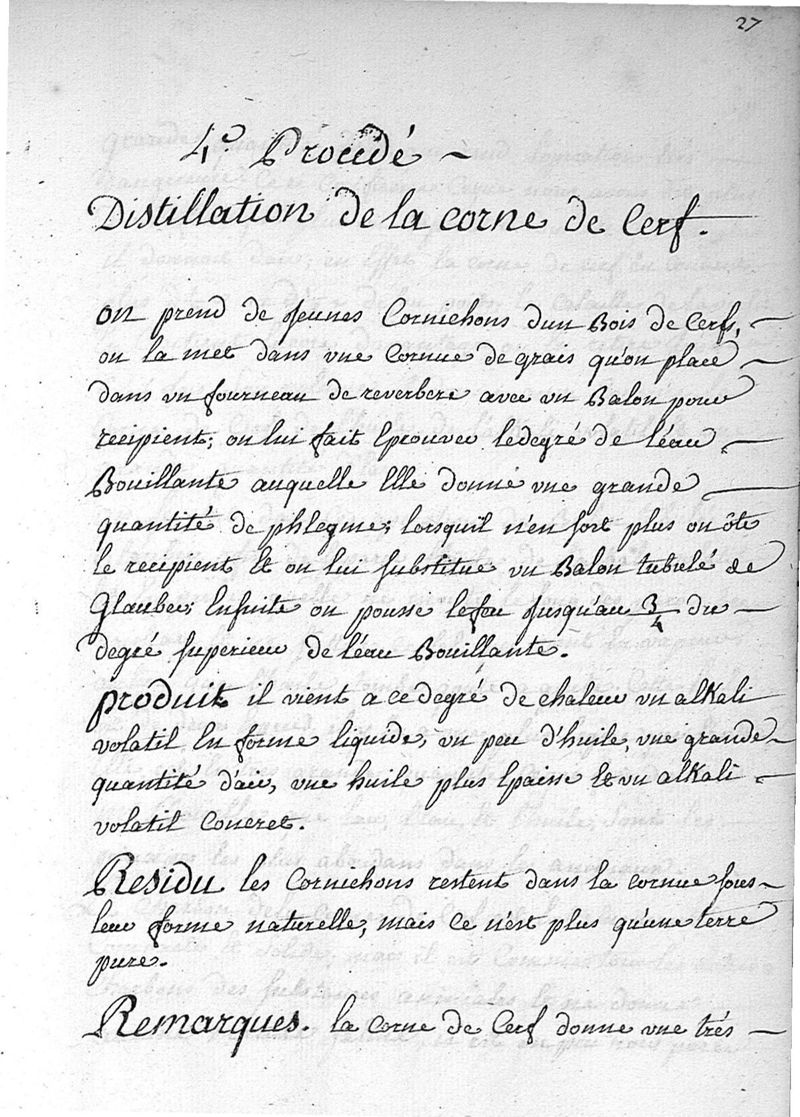 27
4.e Procédé
Distillation de la corne de Cerf.
on prend de jeunes Cornichons dun Bois de Cerfs,
on la met dans vne Cornue de grais qu'on place
dans vn fourneau de reverbere avec vn Balon pour
recipient; on lui fait Eprouver ledegré de l'éau
Bouillante auquelle Elle donné vne grande
quantité de phlegme; lorsquil n'en sort plus on ôte
le recipient Et on lui substitue vn Balon tubulé de
Glauber; Ensuite on pousse lefeu jusqu'au 3/4 du
degré superieur de l'éau Bouillante.
produit il vient a cedegré de chaleur vn alkali
volatil En forme liquide, vn peu d'huile, vne grande
quantité d'air, vne huile plus Epaisse Et vn alkali
volatil Concret.
Residu les Cornichons restent dans la cornue sous
leur forme naturelle, mais ce n'est plus qu'une terre
pure.
Remarques. la corne de Cerf donne vne trés